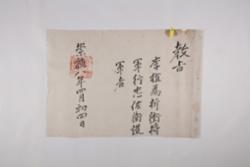 敎旨
李 爲折衝將
軍行忠佐衛護
軍者
崇禎八年四月初四日